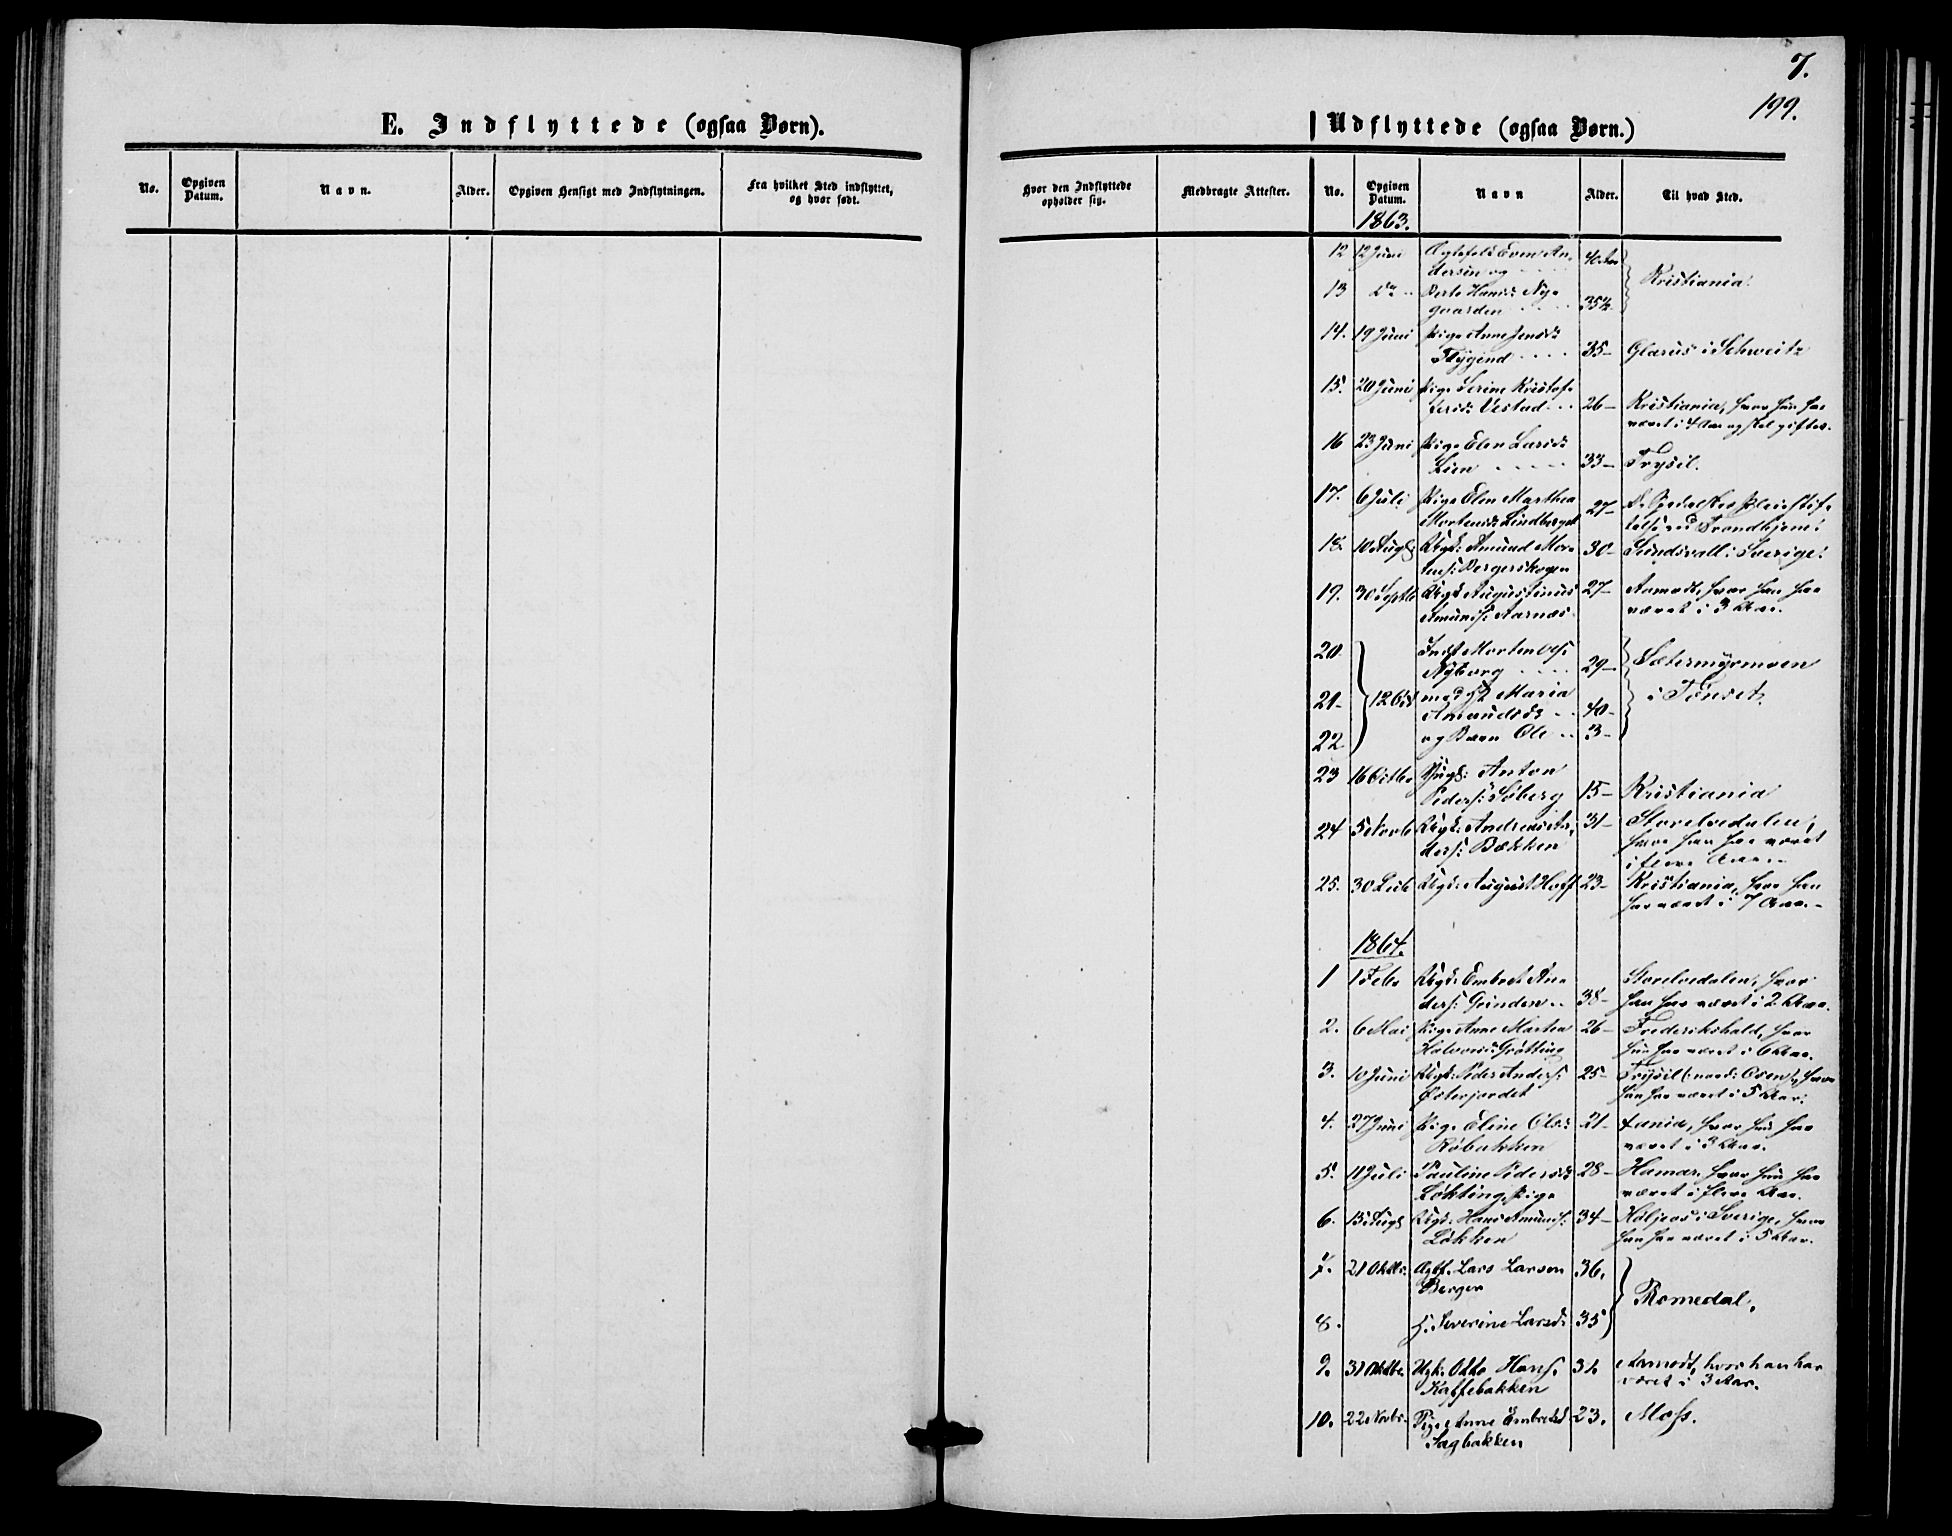 7.
199.
E. Indflyttede (ogsaa Børn).
Udflyttede (ogsaa Børn.)
No.
Opgiven Datum.
Navn.
Alder.
Opgiven Hensigt med Indflytningen.
Fra hvilket Sted indflyttet, og hvor født.
Hvor den Indflyttede opholder sig.
Medbragte Attester.
No.
Opgiven Datum.
Navn
Alder.
Til hvad Sted.
1863.
12 12 Juni Even An- 40 Aar
dersen og
Kristiania
13 Do Berte Hansd: Nye
gaarden 35½
14. 19 Juni Pige Anne Jensd:
Flygind 35- Glarus i Schweitz
15. 20 Juni Pige Serine Kristof-
fersd: Vestad 26- Kristiania, hvor hun har
været i 4 Aar og skal giftes.
16 23 Juni Pige Elen Larsd:
Lien 33- Trysil.
17. 6 Juli Pige Elen Marthea
Mortensd: Lindberget 27-
Trondhjem
18. 10 Aug Ungk: Amund Mor- 30- Sundsvall i Sverige
tens: Bergerskogen
19. 30 Septb Ungk Augustinus 27- Aamodt, hvor han har
Amunds: Aarnæs været i 3 Aar.
20 Inds Morten Ols:
Nyborg 29- Sætermyrmoen
21- 12 Oct med H Maria i Tønset.
Amundsd: 40-
22 og Barn Ole 3-
23 16 Octbr Yngl: Anton
Peders: Søberg 15- Kristiania
24 5 Novb Ungk: Andreas An- 31- Storelvedalen,
ders: Bækken hvor han har været
i flere Aar.
25. 30 Decb Ungk: August Hoff 23- Kristiania, hvor han
har været i 7 Aar.
1864.
1 1 Feb. Ungk: Embret An- Storelvedalen, hvor
ders: Grinden 38- han har været i 2 Aar.
2. 6 Mai Pige Anne Marthea 26- Frederikshald, hvor
Halvorsd: Grøtting hun har været i 6 Aar.
3. 10 Juni Ungk: Peder Anders: 25- Trysil (nord: Osen), hvor
Østerjordet han har været i 5 Aar.
4. 27 Juni Pige Eline Olsd: 21- hvor hun har
Røbakken været i 3 Aar.
5. 11 Juli Pauline Pedersd: 28- Hamar, hvor hun har
Løkting, Pige været i flere Aar.
6. 15 Aug Ungk: Hans Amunds: 34- i Sverige, hvor
Løkken han har været i 5 Aar.
7. 21 Oktbr. Lars Larsen 36.
Berger
Romedal.
8. H. Severine Larsd: 35
9. 31 Oktbr. Ugk. Otto Hans. 31. Aamodt, hvor han har
Kaffebakken været i 3 Aar.
10. 22 Novbr. Pige Anne Embretsd 23. Moss.
Sagbakken